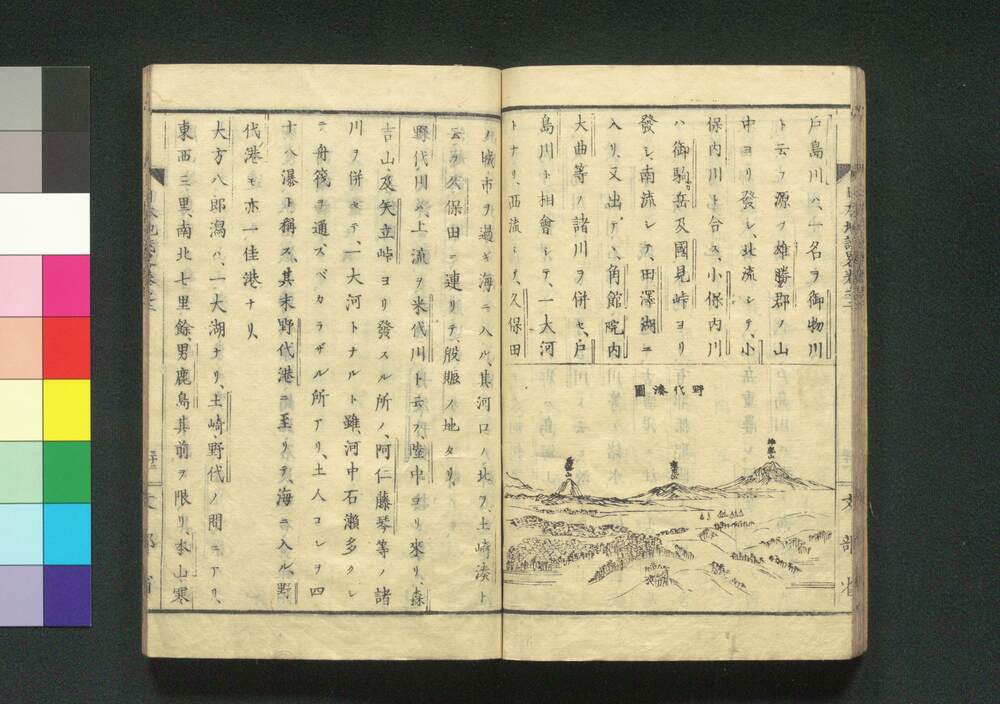 戸島川ハ、一名ヲ御物川
ト云フ源ヲ雄勝郡ノ山
中ヨリ發シ、北流シテ、小
保内川ト合ス、小保内川
ハ御駒岳及國見峠ヨリ
發シ、南流シテ、田澤湖ニ
入リ、又出デヽ、角館院内
大曲等ノ諸川ヲ併セ、戸
島川ト相會シテ、一大河
トナリ、西流シテ、久保田
野代湊圖
ノ城市ヲ過ギ海ニ入ル、其河口ノ北ヲ、土崎湊ト
云フ、久保田ニ連リテ、殷賑ノ地タリ、
野代川ハ、上流ヲ米代川ト云フ、陸中ヨリ來リ、森
吉山、及矢立峠ヨリ發スル所ノ、阿仁藤琴等ノ諸
川ヲ併セテ、一大河トナルト雖、河中石瀬多クシ
テ舟筏ヲ通ズベカラザル所アリ、土人コレヲ四
十八瀑ト稱ス、其末野代港ニ至リテ、海ニ入ル、野
代港モ亦一佳港ナリ、
大方八郎潟ハ、一大湖ナリ、土崎、野代ノ間ニアリ、
東西三里、南北七里餘、男鹿島其前ヲ限リ、本山寒
文部省